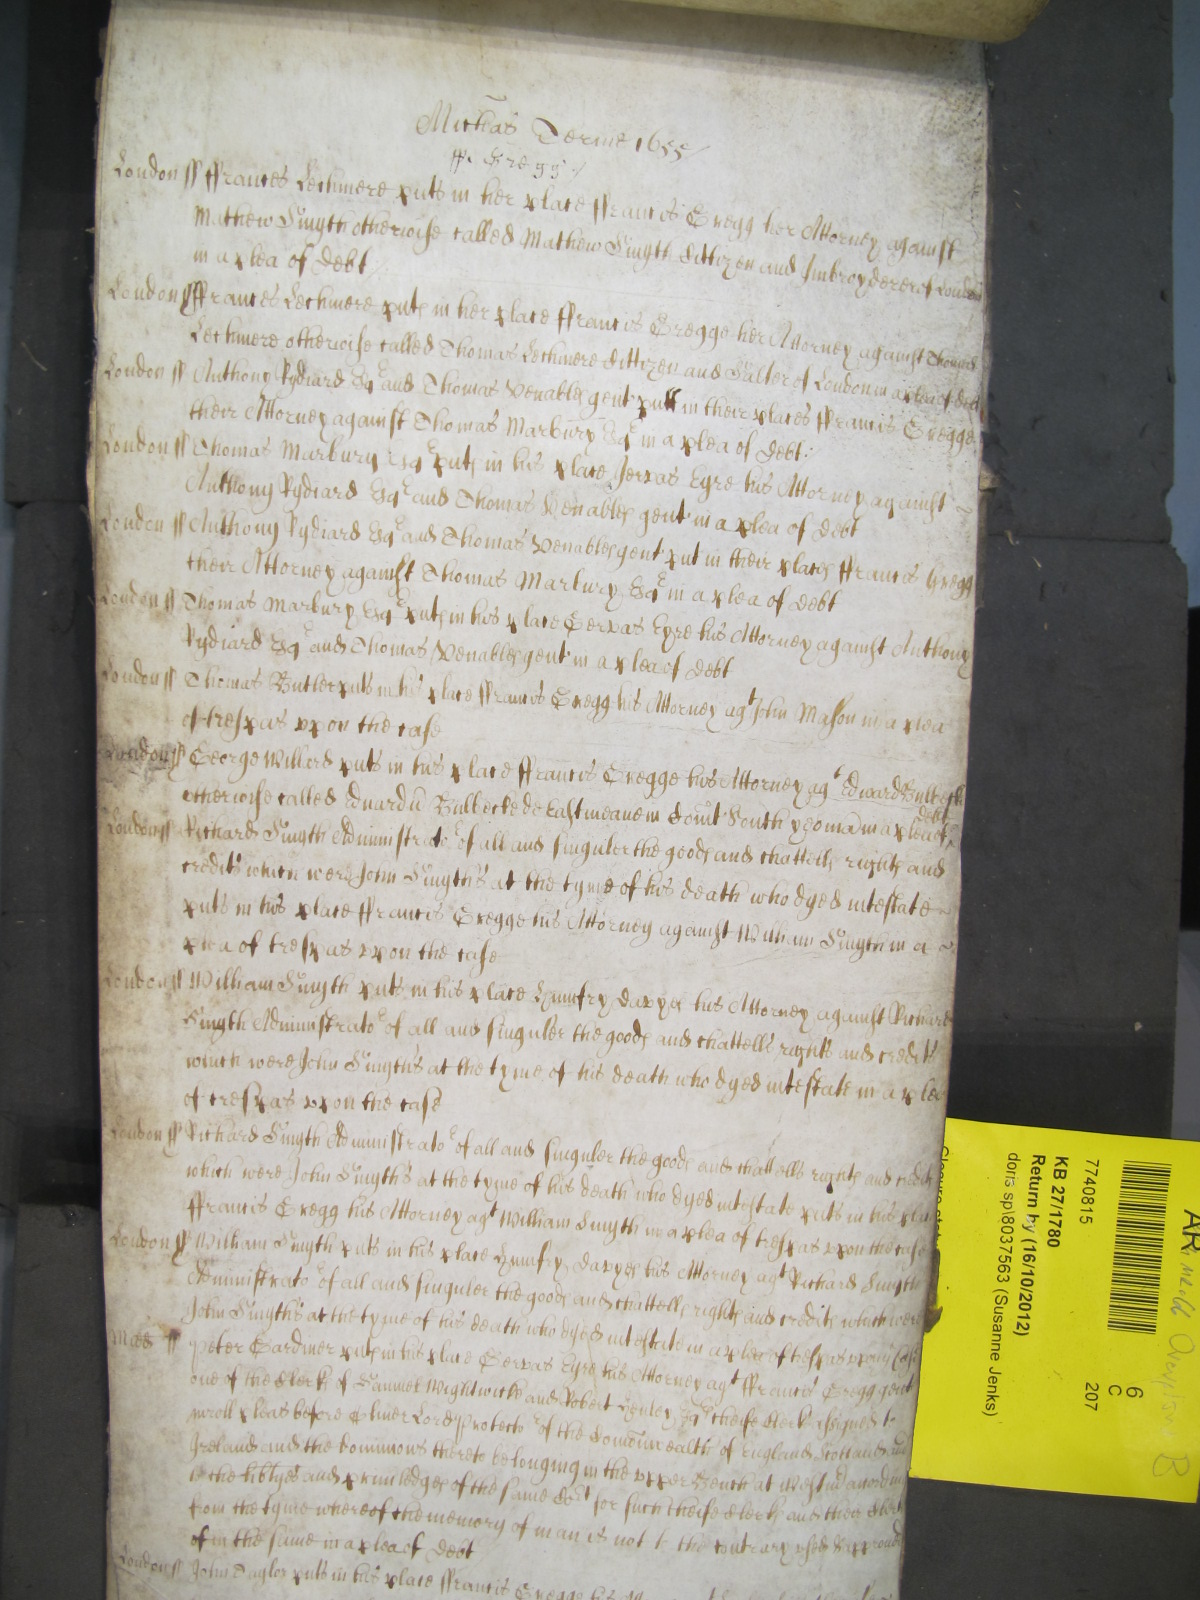 Michas Terme 1655
ff. Gregg
London ss ffrances Lechmere puts in her place ffrancis Gregg her Attorney against
Mathew Smyth otherwise called Mathew Smyth Cittizen and Imbroyderer of London
in a plea of Debt
London ss ffrances Lechmere putts in her place ffrancis Gregge her Attorney against Thomas
Lechmere otherwise called Thomas Lechmere Cittizen and Salter of London in a plea of Debt
London ss Anthony Rydiard Esqr and Thomas Venables gent putt in their places ffrancis Gregge
their Attorney against Thomas Marbury Esqr in a plea of Debt:
London ss Thomas Marbury Esqr putts in his place Jervas Eyre his Attorney against
Anthony Rydiard Esqr and Thomas Venables gent in a plea of Debt
London ss Anthony Rydiard Esqr and Thomas Venables gent put in their places ffrancis Gregg
their Attorney against Thomas Marbury Esqr in a plea of Debt
London ss Thomas Marbury Esqr putts in his place Gervas Eyre his Attorney against Anthony
Rydiard Esqr and Thomas Venables gent in a plea of Debt
London ss Thomas Butler puts in his place ffrancis Gregg his Attorney agt John Mason in a plea
of trespas upon the case
London ss George Willard puts in his place ffrancis Gregge his Attorney agt Edward Bulbecke
otherwise called Edwardu Bulbecke de Eastmeane in Comt South yeoman in a plea of Debt
London ss Richard Smyth Administrator of all and singuler the goods and chattells rights and
credits which were John Smyth's at the tyme of his death who dyed intestate
puts in his place ffrancis Gregge his Attorney against William Smyth in a
plea of trespas upon the case
London ss William Smyth puts in his place Humfry Davyes his Attorney against Richard
Smyth Administrator of all and singuler the goods and chattells rights and credits
which were John Smyth's at the tyme of his death who dyed intestate in a plea
of trespas upon the case
London ss Richard Smyth Administrator of all and singuler the goods and chattells rights and credits
which were John Smyth's at the tyme of his death who dyed intestate puts in his place
ffrancis Gregg his Attorney agt William Smyth in a plea of trespas upon the case
London ss William Smyth puts in his place Humfry Davyes his Attorney agt Richard Smyth
Administrator of all and singuler the goods and chattells rights and credits which were
John Smyths at the tyme of his death who dyed intestate in a plea of trespas upon ye case
Midd ss Peter Gardiner putts in his place Gervas Eyre his Attorney agt ffrancis Gregg gent
one of the Clerks of Samuel Wightwicke and Robert Henley Esqr cheife Clerk assigned to
inroll pleas before Oliver Lord Protector of the Comonwealth of England Scotland and
Ireland and the dominions thereto belonging in the upper Bench at Westmr according
to the libtyes and priviledges of the same Court for such cheife Clerk and their Clerks
from the tyme whereof the memory of man is not to the contrary used & approved
of in the same in a plea of Debt
London ss John Taylor puts in his place ffrancis Gregge his
7740815
KB 27/1780
Return by (16/10/2012)
doris sp\8037563 (Susanne Jenks)
6
C
207
AR
B